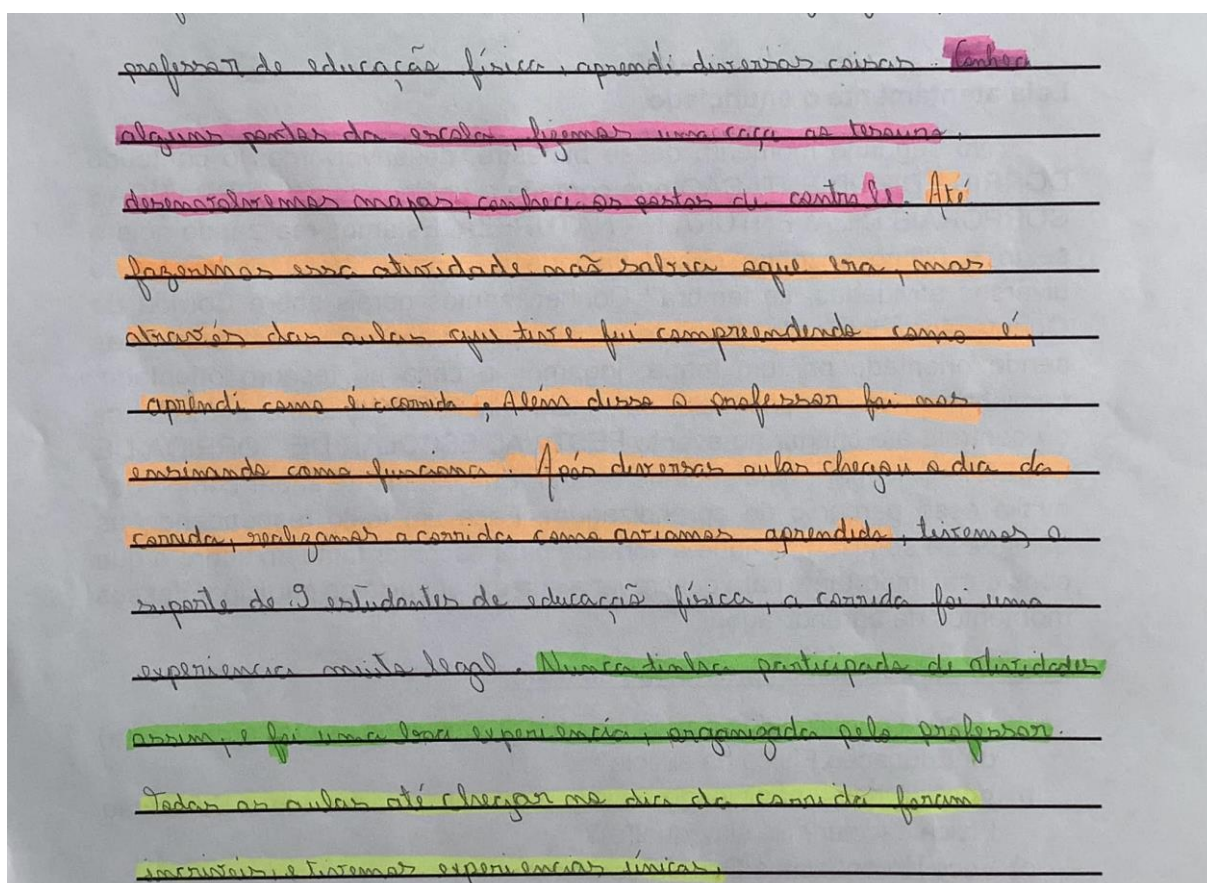 professor de educação física, aprendi diversas coisas. Conheci
alguns pontos da escola, fizemos uma caça ao tesouro,
desenvolvemos mapas, conheci os postos de controle. Até
fazermos essa atividade não sabia oque era, mas
através das aulas que tive fui compreendendo como é,
aprendi como é a corrida, Além disso o professor foi nos
ensinando como funciona. Após diversas aulas chegou o dia da
corrida, realizamos a corrida como aviamos aprendido, tivemos o
suporte de 9 estudantes de educação física, a corrida foi uma
experiencia muito legal. Nunca tinha participado de atividades
assim, e foi uma boa experiência, organizada pelo professor.
Todas as aulas até chegar no dia da corrida foram
incríveis, e tivemos experiencias únicas.